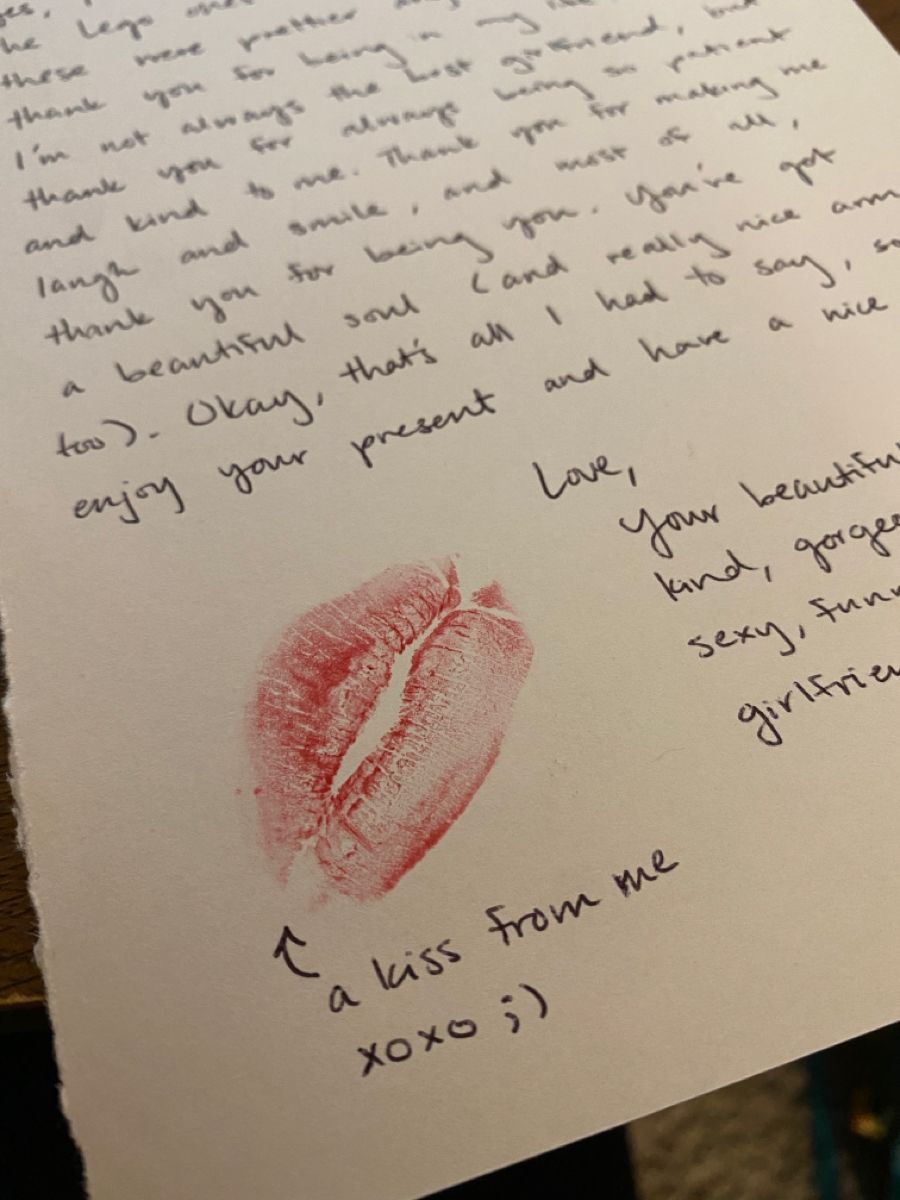 he Lego ones
these were prettier
thank you for being in my
I'm not always the best girlfriend, but
thank you for always being so patient
and kind to me. Thank you for making me
laugh and smile, and most of all,
thank you for being you. You've got
a beautiful soul (and really nice arm
too). Okay, that's all I had to say, so
enjoy your present and have a nice
Love,
Your beautiful
kind, gorge
sexy, funn
girlfrien
a kiss from me
xoxo ;)